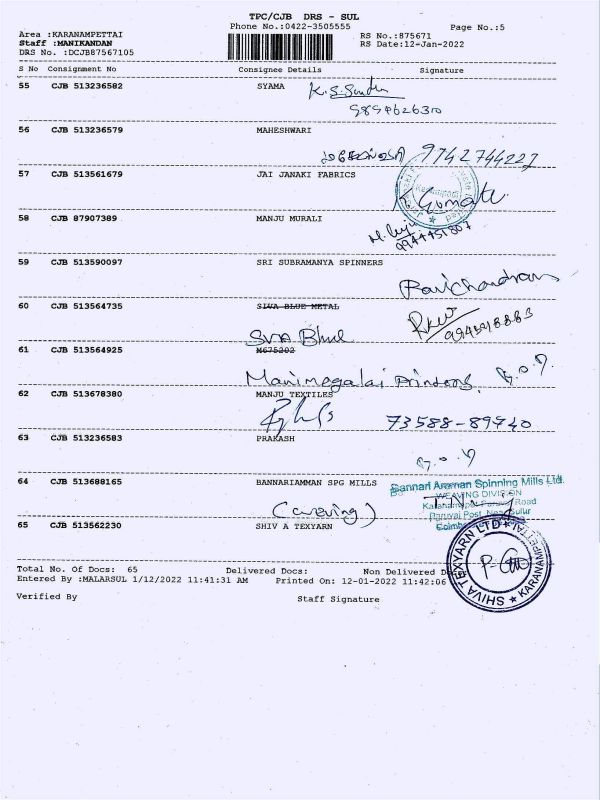 TPC/CJB DRS - SUL
Phone No.:0422-3505555
Page No.:5
Area :KARANAMPETTAI
RS No.:875671
Staff :MANIKANDAN
RS Date:12-Jan-2022
DRS No. :DCJB87567105
S No Consignment No Consignee Details Signature
55 CJB 513236582 SYAMA K.S.Sunder
9894626310
56 CJB 513236579 MAHESHWARI
9742744227
57 CJB 513561679 JAI JANAKI FABRICS
K Gomati
58 CJB 87907389 MANJU MURALI
9944451807
59 CJB 513590097 SRI SUBRAMANYA SPINNERS
Ravichandran
60 CJB 513564735 SIVA BLUE METAL
Siva Blue
61 CJB 513564925 M675202
Manimegalai Printers
62 CJB 513678380 MANJU TEXTILES
73588-89740
63 CJB 513236583 PRAKASH
64 CJB 513688165 BANNARIAMMAN SPG MILLS
Bannari Amman Spinning Mills Ltd.
WEAVING DIVISION
Road
Paruvai Post, Near Sulur
(weaving)
65 CJB 513562230 SHIV A TEXYARN
SHIVA TEXYARN LTD ★ KARANAMPETTAI ★
Total No. Of Docs: 65 Delivered Docs: Non Delivered
Entered By :MALARSUL 1/12/2022 11:41:31 AM Printed On: 12-01-2022 11:42:06
Verified By Staff Signature